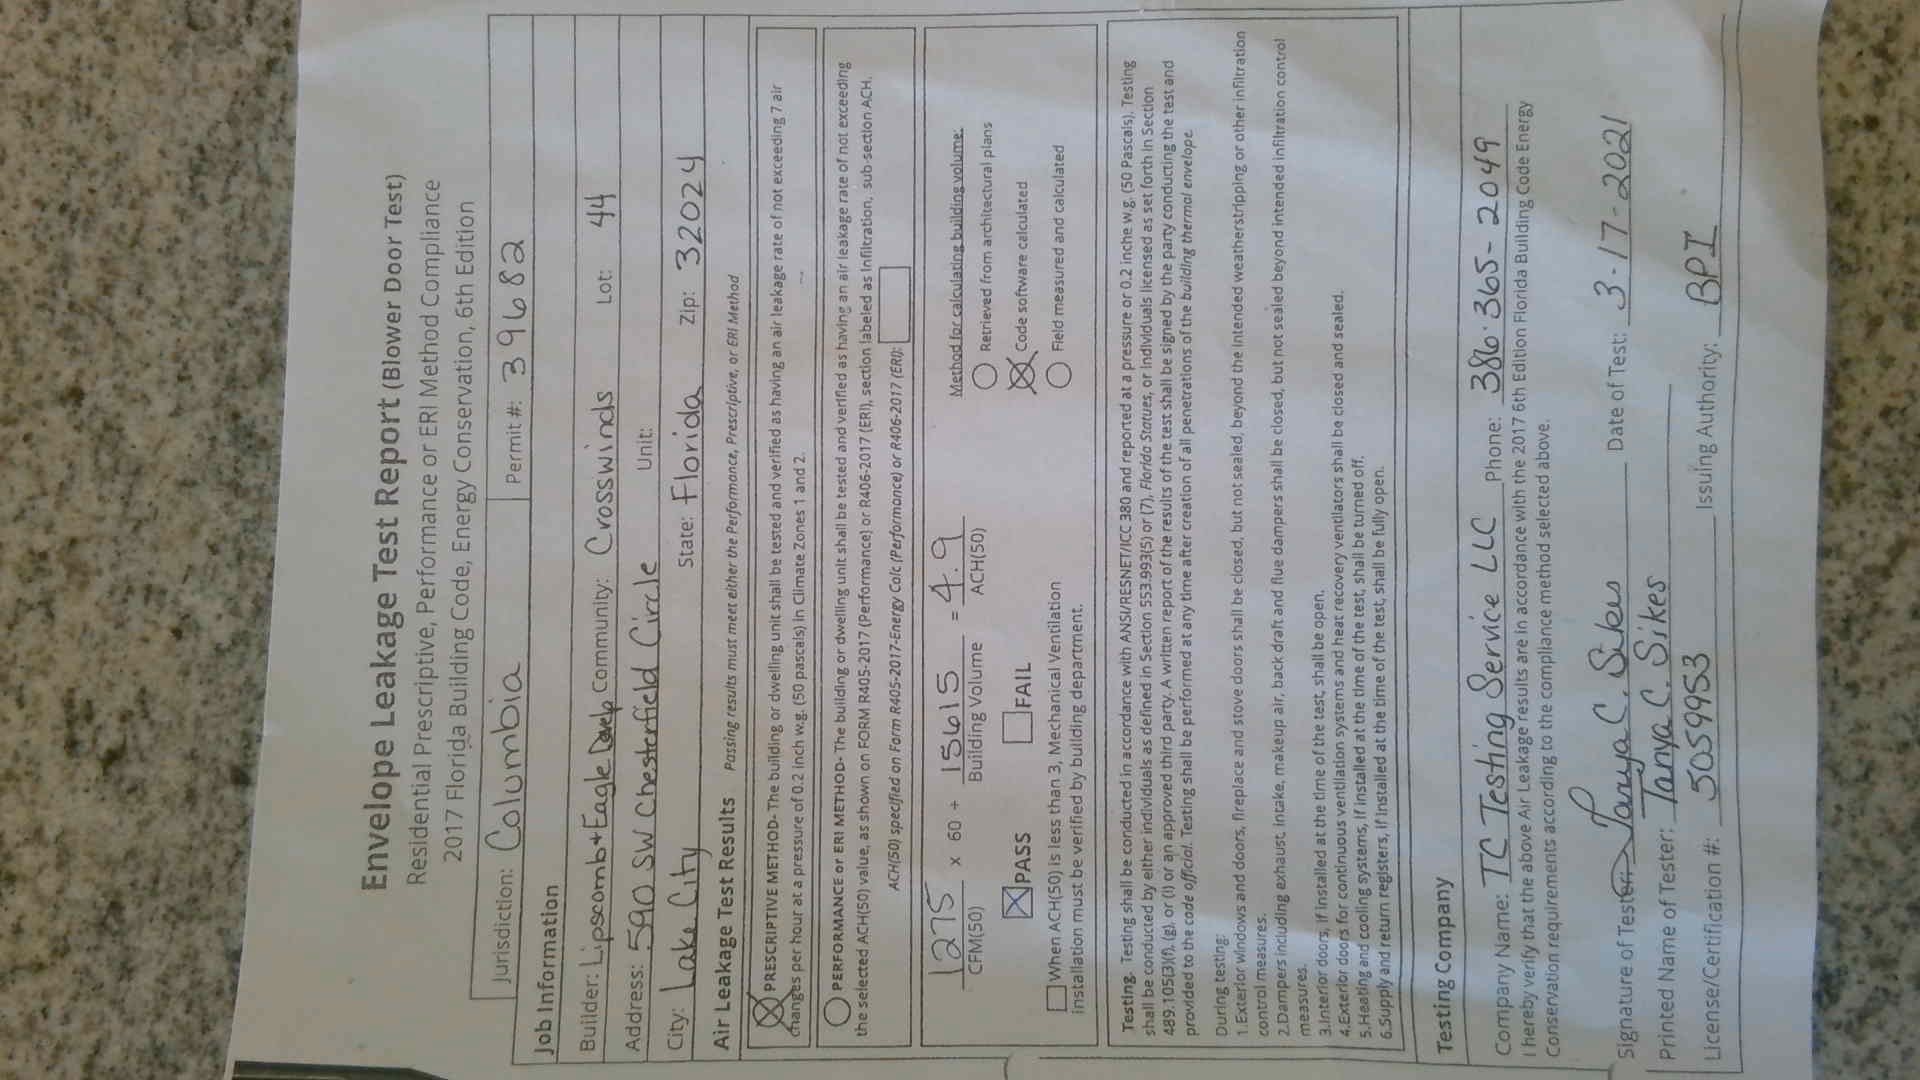 Envelope Leakage Test Report (Blower Door Test)
Residential Prescriptive, Performance or ERI Method Compliance
2017 Florida Building Code, Energy Conservation, 6th Edition
Jurisdiction: Columbia Permit #: 39682
Job Information
Builder: Lipscomb+Eagle Develp Community: Crosswinds Lot: 44
Address: 590 SW Chesterfield Circle Unit:
City: Lake City State: Florida Zip: 32024
Air Leakage Test Results Passing results must meet either the Performance, Prescriptive, or ERI Method
PRESCRIPTIVE METHOD- The building or dwelling unit shall be tested and verified as having an air leakage rate of not exceeding 7 air
changes per hour at a pressure of 0.2 inch w.g. (50 pascals) in Climate Zones 1 and 2.
PERFORMANCE or ERI METHOD- The building or dwelling unit shall be tested and verified as having an air leakage rate of not exceeding
the selected ACH(50) value, as shown on FORM R405-2017 (Performance) or R406-2017 (ERI), section labeled as Infiltration, sub-section ACH.
ACH(50) specified on Form R405-2017-Energy Calc (Performance) or R406-2017 (ERI):
1275 x 60 ÷ 15615 = 4.9
CFM(50) Building Volume ACH(50)
PASS FAIL
When ACH(50) is less than 3, Mechanical Ventilation
installation must be verified by building department.
Method for calculating building volume:
Retrieved from architectural plans
Code software calculated
Field measured and calculated
Testing. Testing shall be conducted in accordance with ANSI/RESNET/ICC 380 and reported at a pressure or 0.2 inche w.g. (50 Pascals). Testing
shall be conducted by either individuals as defined in Section 553.993(5) or (7), Florida Statues, or individuals licensed as set forth in Section
489.105(3)(f), (g), or (i) or an approved third party. A written report of the results of the test shall be signed by the party conducting the test and
provided to the code official. Testing shall be performed at any time after creation of all penetrations of the building thermal envelope.
During testing:
1.Exterior windows and doors, fireplace and stove doors shall be closed, but not sealed, beyond the intended weatherstripping or other infiltration
control measures.
2.Dampers including exhaust, intake, makeup air, back draft and flue dampers shall be closed, but not sealed beyond intended infiltration control
measures.
3.Interior doors, if installed at the time of the test, shall be open.
4.Exterior doors for continuous ventilation systems and heat recovery ventilators shall be closed and sealed.
5.Heating and cooling systems, if installed at the time of the test, shall be turned off.
6.Supply and return registers, if installed at the time of the test, shall be fully open.
Testing Company
Company Name: TC Testing Service LLC Phone: 386-365-2049
I hereby verify that the above Air Leakage results are in accordance with the 2017 6th Edition Florida Building Code Energy
Conservation requirements according to the compliance method selected above.
Signature of Tester: Tanya C. Sikes Date of Test: 3-17-2021
Printed Name of Tester: Tanya C. Sikes
License/Certification #: 5059953 Issuing Authority: BPI